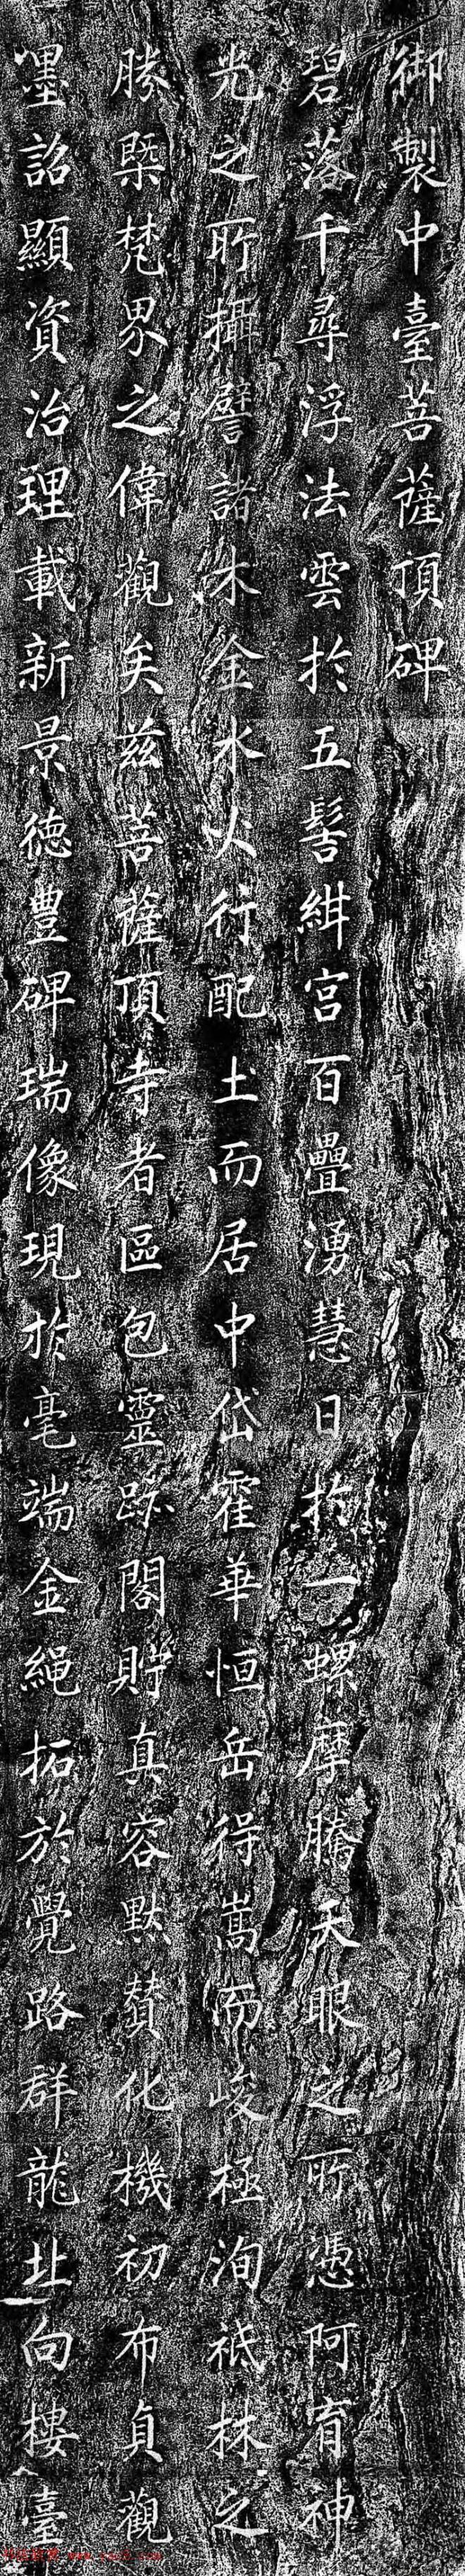 御製中臺菩薩頂碑
碧落千尋浮法雲於五髻紺宮百疊湧慧日於一螺摩騰天眼之所憑阿育神
光之所攝譬諸木金水火行配土而居中岱霍華恒岳得嵩而峻極洵祗林之
勝槩梵界之偉觀矣兹菩薩頂寺者區包靈跡閣貯真容默贊化機初布貞觀
墨詔顯資治理載新景德豐碑瑞像現於毫端金繩拓於覺路群龍北向樓臺